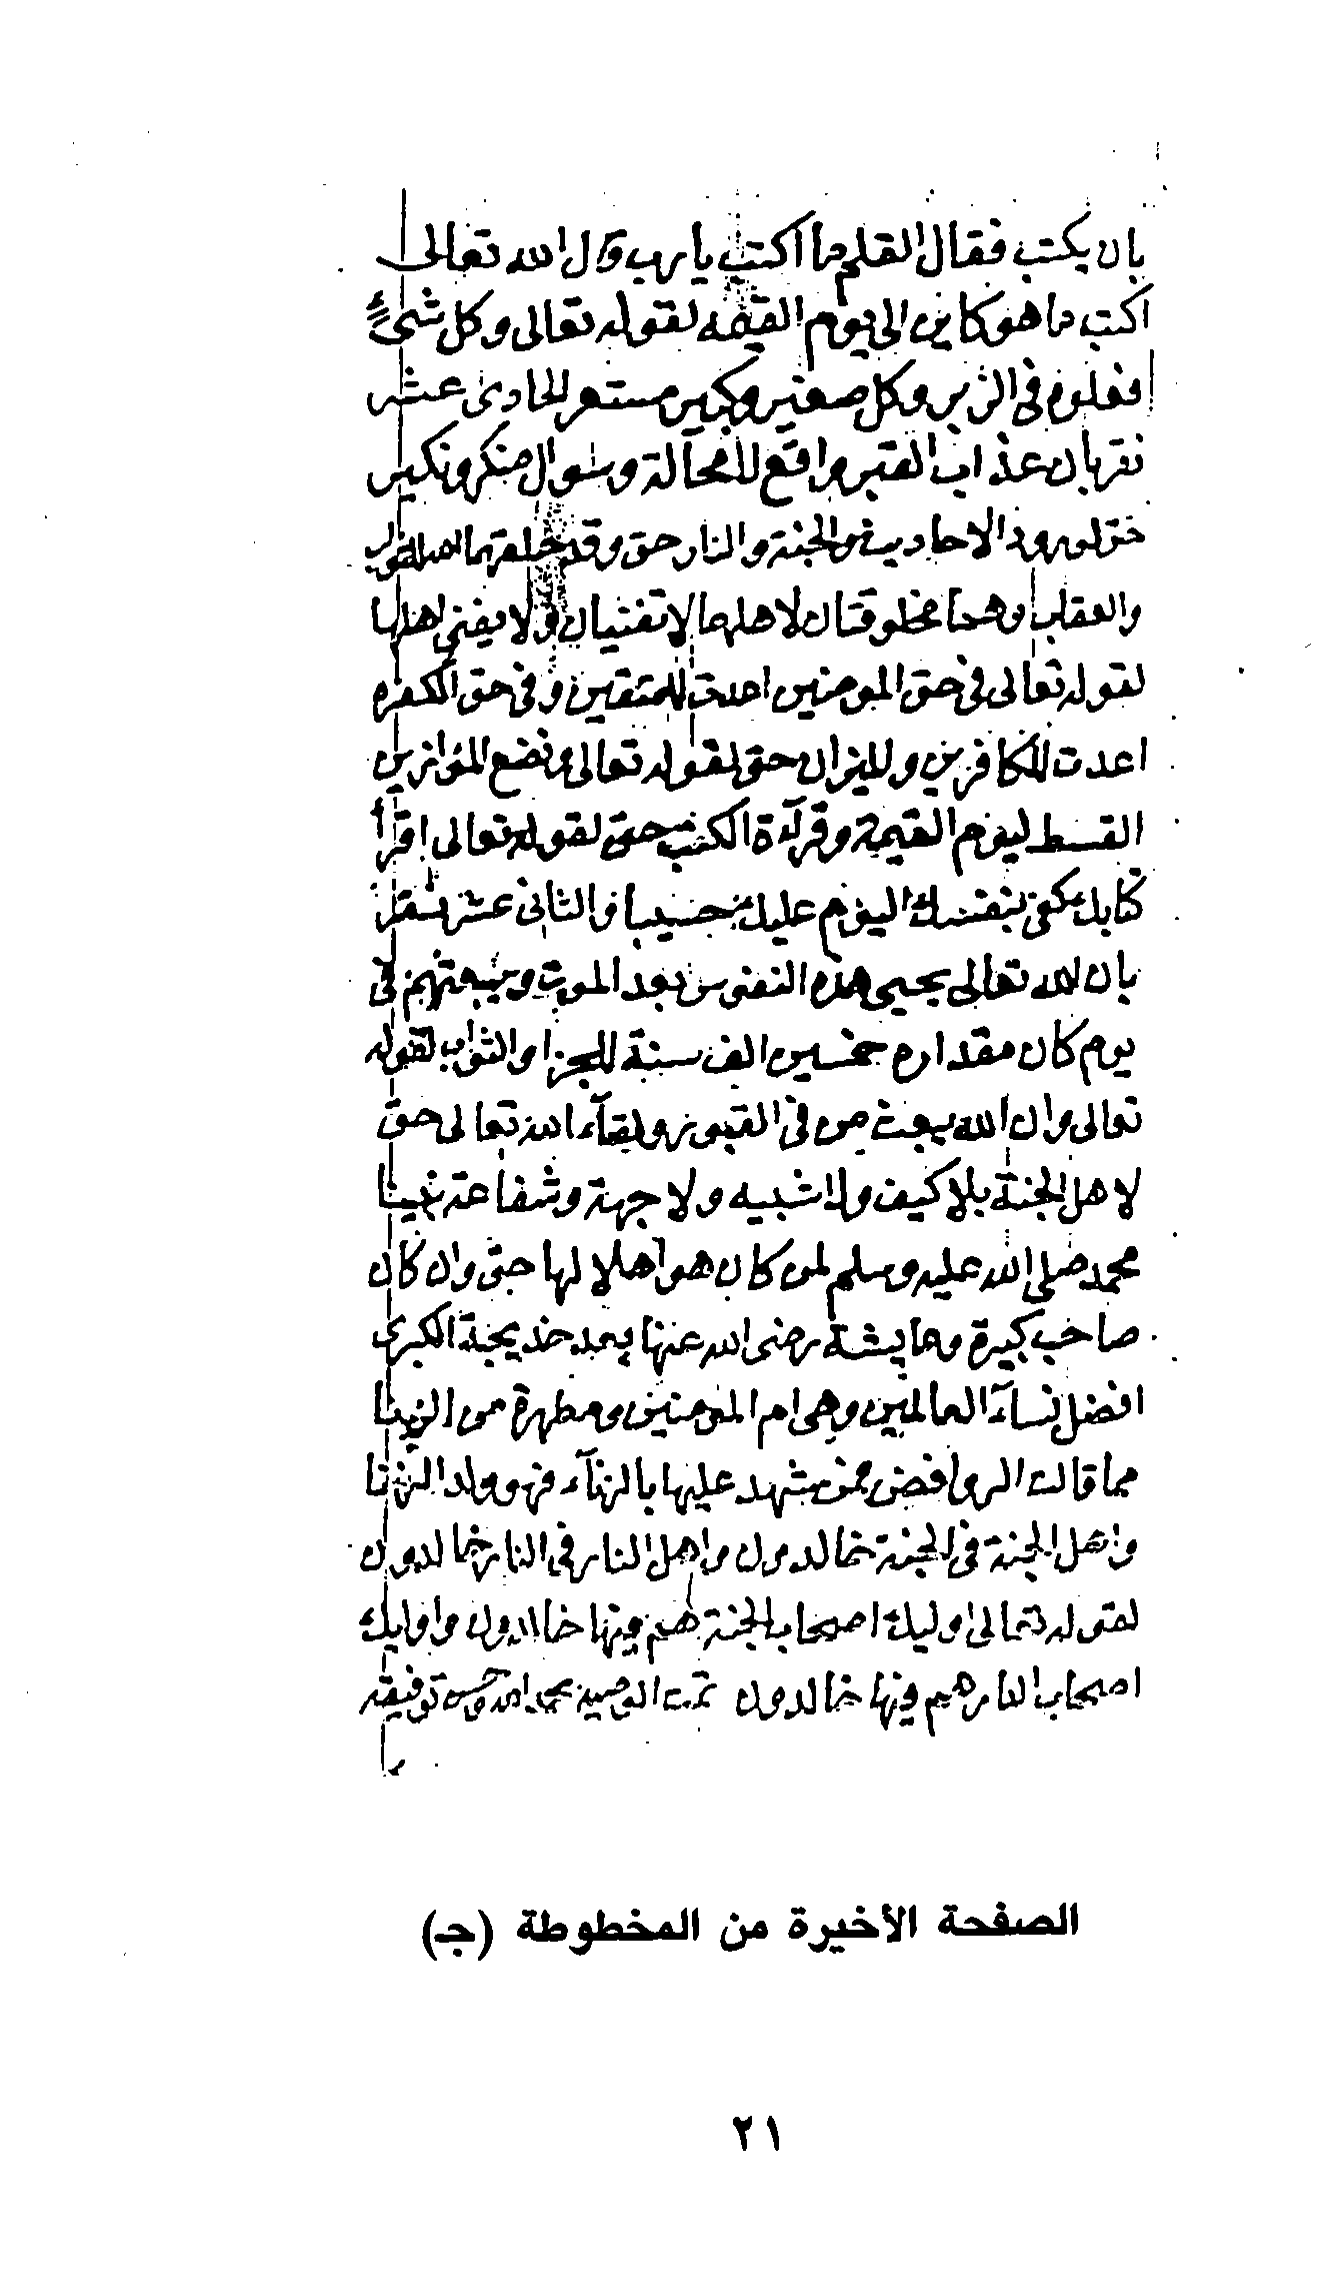 بان يكتب فقال القلم ما اكتب يا رب قال الله تعالى
اكتب ما هو كاين الى يوم القيمه لقوله تعالى وكل شئ
فعلوه فى الزبر وكل صغير وكبير مستطر الحادى عشر
نقر بان عذاب القبر واقع لا محالة وسوال منكر ونكير
حق لورود الاحاديث والجنة والنار حق وقد خلقهما الله للثواب
والعقاب وهما مخلوقتان لاهلهما لا تفنيان ولا يفنى اهلها
لقوله تعالى فى حق المومنين اعدت للمتقين وفى حق الكفره
اعدت للكافرين والميزان حق لقوله تعالى ونضع الموازين
القسط ليوم القيمة وقرآة الكتب حق لقوله تعالى اقرأ
كتابك كفى بنفسك اليوم عليك حسيبا والثانى عشر نقر
بان الله تعالى يحيى هذه النفوس بعد الموت ويبعثهم فى
يوم كان مقداره خمسين الف سنة للجزا والثواب لقوله
تعالى وان الله يبعث من فى القبور ولقآء الله تعالى حق
لاهل الجنة بلا كيف ولا شبيه ولا جهة وشفاعة نبينا
محمد صلى الله عليه وسلم لمن كان هو اهلا لها حق وان كان
صاحب كبيرة وعايشة رضى الله عنها بعد خديجة الكبرى
افضل نسآء العالمين وهى ام المومنين ومطهرة من الزنا
مما قالت الروافض فمن شهد عليها بالزنآء فهو ولد الزنا
واهل الجنة فى الجنة خالدون واهل النار فى النار خالدون
لقوله تعالى اوليك اصحاب الجنة هم فيها خالدون واوليك
اصحاب النار هم فيها خالدون تمت الوصية بحمد الله وحسن توفيقه
الصفحة الأخيرة من المخطوطة (جـ)
٢١